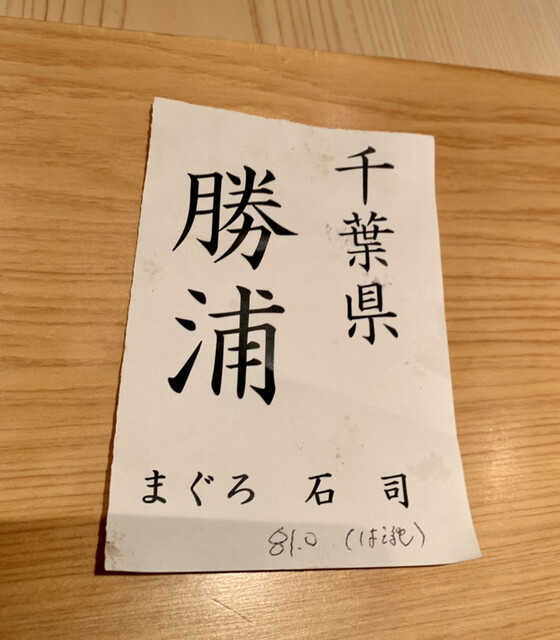 千葉県
勝浦
まぐろ 石司
81.0 (はえ縄)